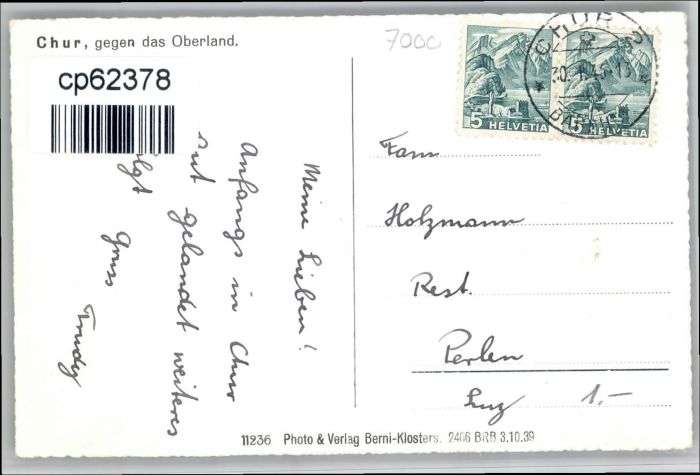 Chur, gegen das Oberland.
7000
cp62378
CHUR 2
5 HELVETIA
5 HELVETIA
Meine Lieben!
Anfangs in Chur
gut gelandet weiteres
folgt
Gruss
Trudy
Fam
Holzmann
Rest.
Perlen
Luz
1.–
11236 Photo & Verlag Berni-Klosters. 2406 BRB 3.10.39